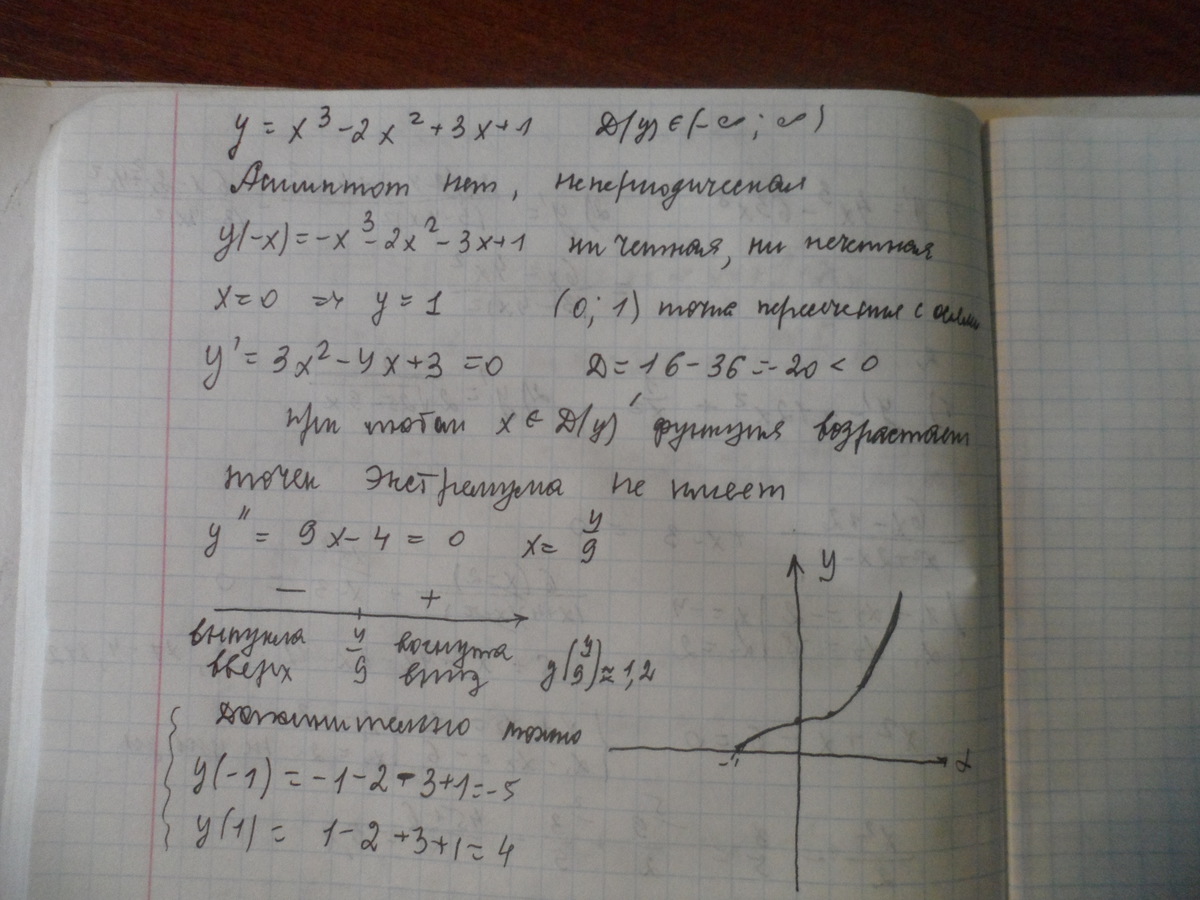 y = x³ - 2x² + 3x + 1   D(y) ∈ (-∞; ∞)
Асимптот нет, непериодическая
y(-x) = -x³ - 2x² - 3x + 1   ни четная, ни нечетная
x = 0 ⇒ y = 1   (0; 1) точка пересечения с осями
y' = 3x² - 4x + 3 = 0   D = 16 - 36 = -20 < 0
при любом x ∈ D(y) функция возрастает
точек экстремума не имеет
y'' = 9x - 4 = 0   x = 4/9
- +
выпукла 4/9 вогнута
вверх вниз y(4/9) ≈ 1,2
Дополнительно можно
y(-1) = -1 - 2 - 3 + 1 = -5
y(1) = 1 - 2 + 3 + 1 = 4
y
-1
x